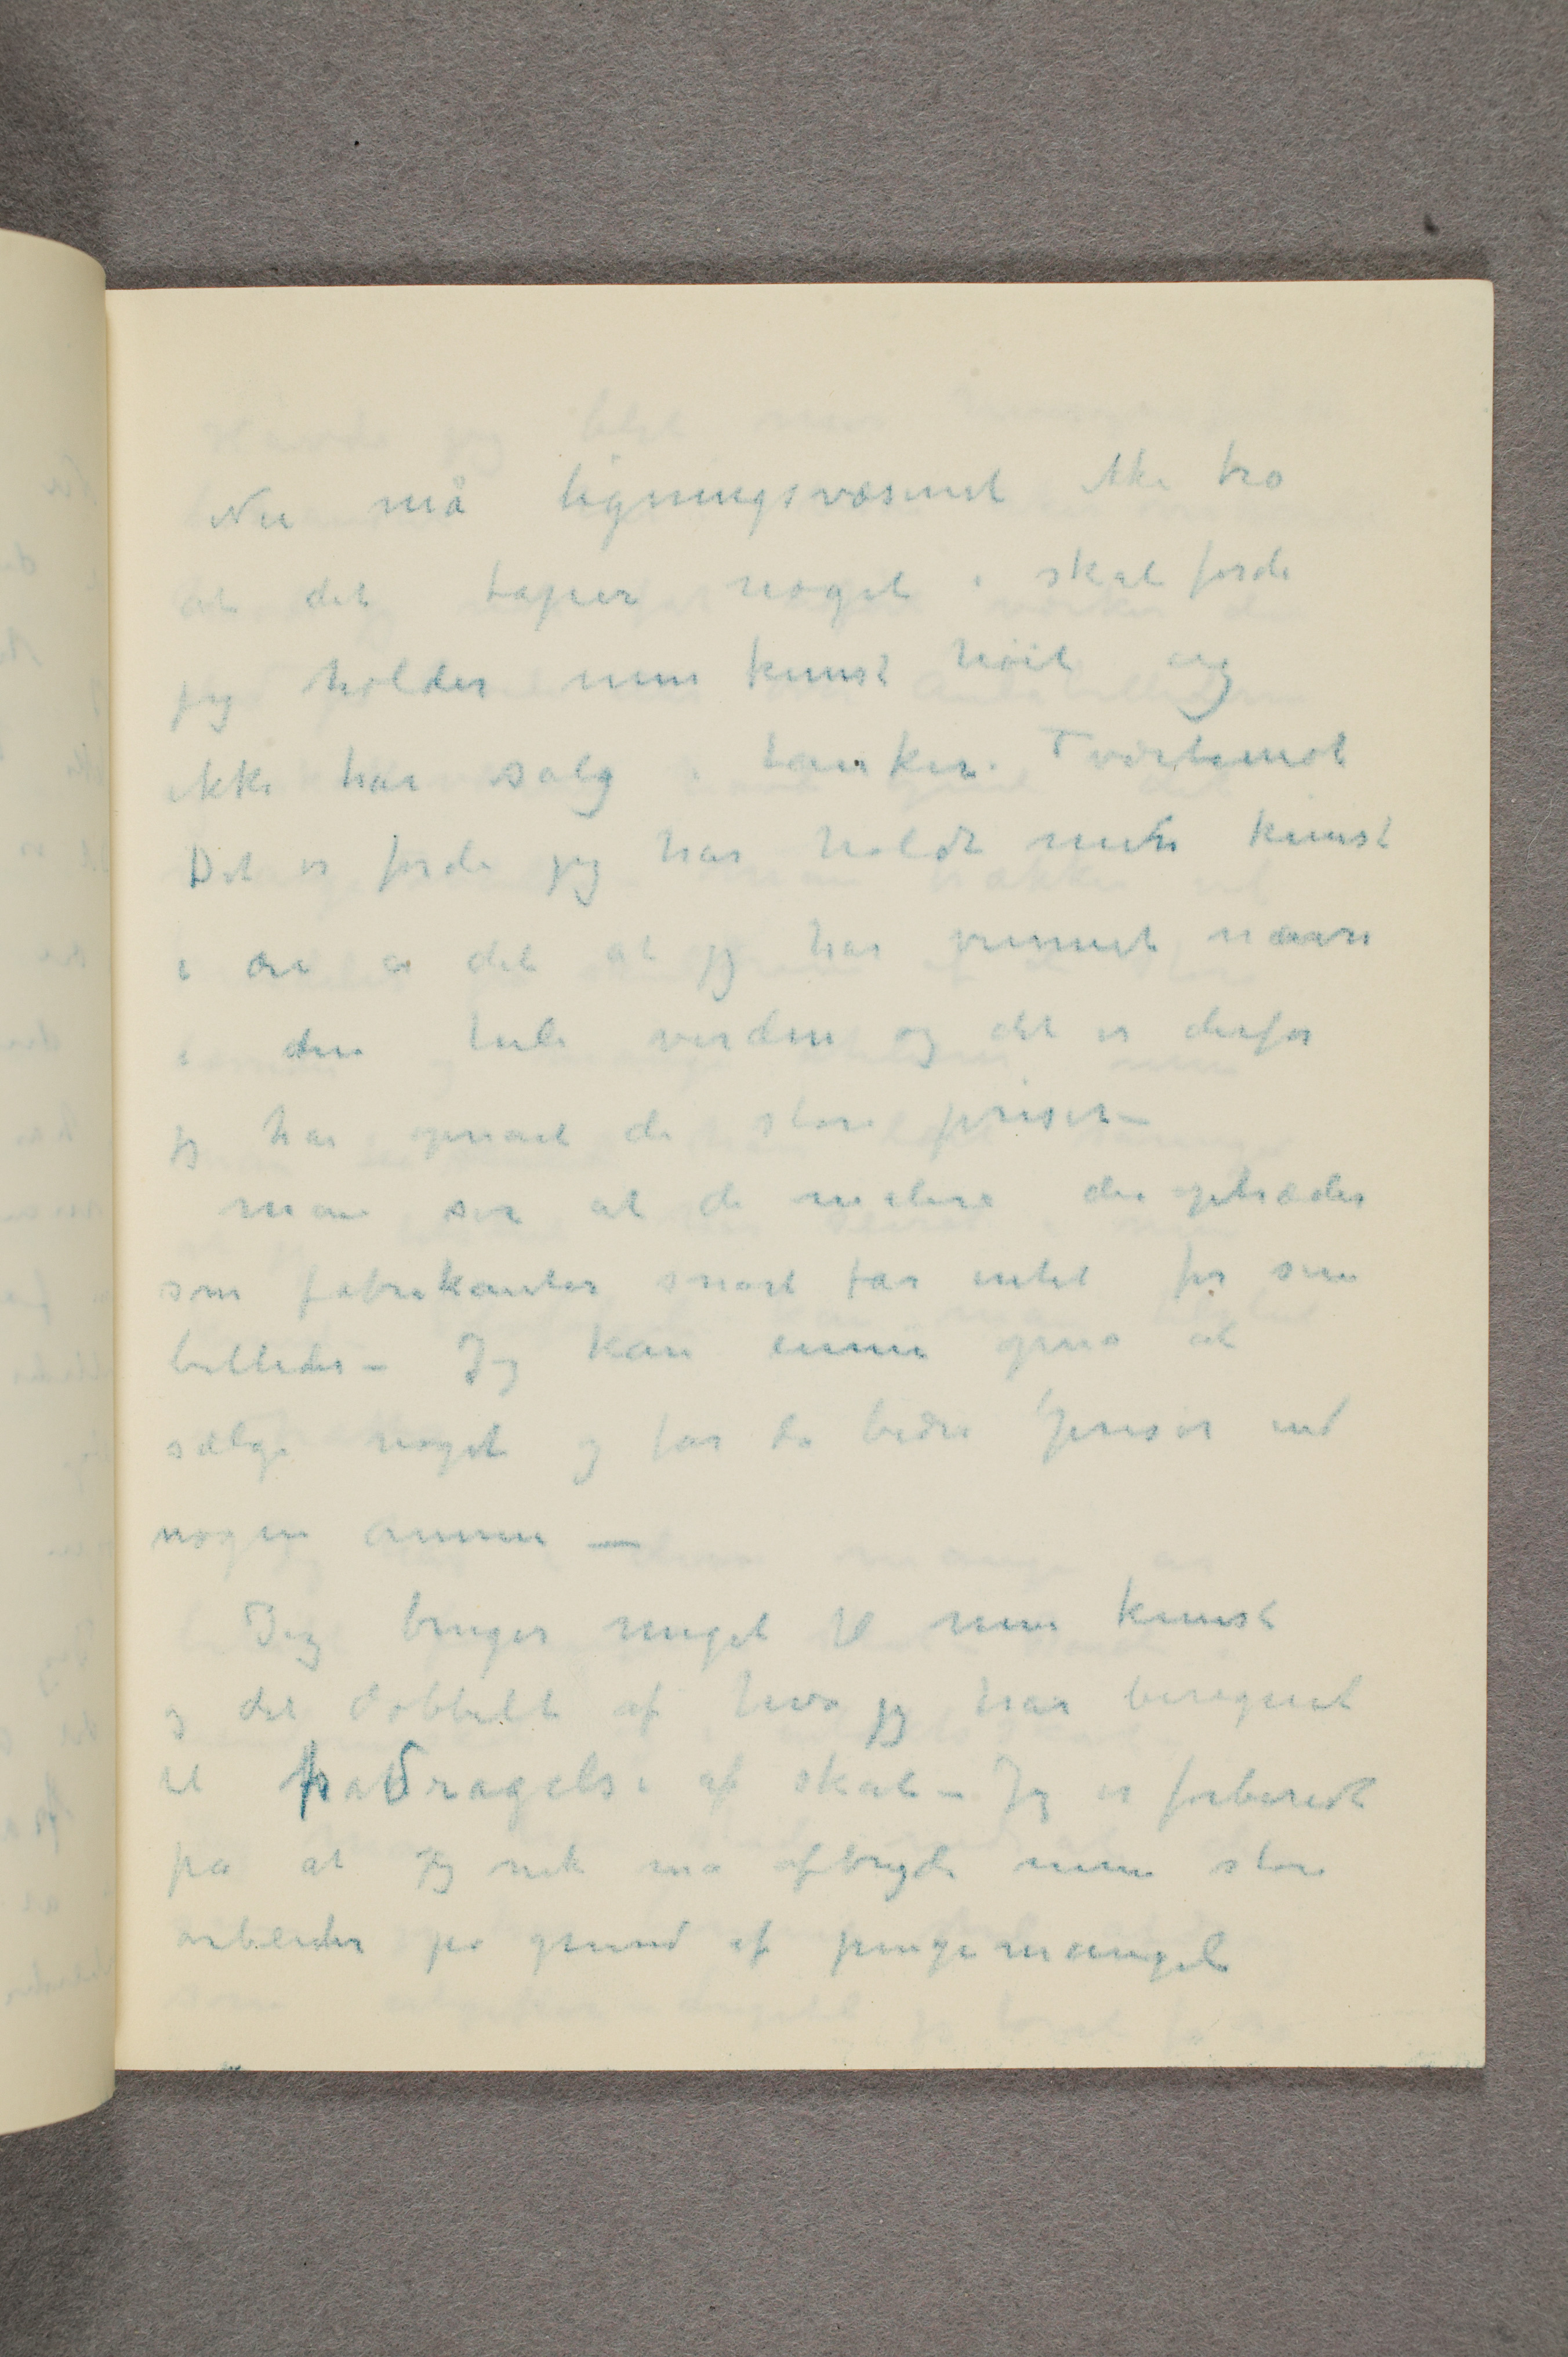 Nu må ligningsvæsenet ikke tro
at det taper noget i skat fordi
jeg holder min kunst høit og
ikke har salg i tanker. Tværtemot
Det er fordi jeg har holdt min kunst
i ære er det at jeg har vunnet navn
i den hele verden og det er derfor
jeg har opnaaet de store priser –
man ser at de malere der optræder
som fabrikanter snart får intet for sine
billeder – Jeg kan ennu opnå at
sælge noget og får da bedre priser end
nogen annen –
Jeg bruger meget til min kunst
og det dobbelte af hva jeg har beregnet
til fradragelse af skat – Jeg er forberedt
på at jeg nok må afbryde mine store
arbeider på grund af pengemangel